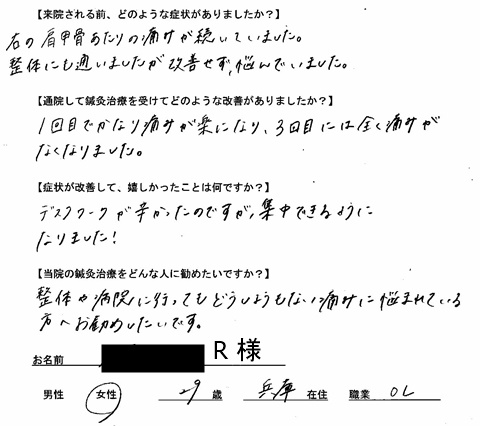 【来院される前、どのような症状がありましたか？】
右の肩甲骨あたりの痛みが続いていました。
整体にも通いましたが改善せず、悩んでいました。
【通院して鍼灸治療を受けてどのような改善がありましたか？】
1回目でかなり痛みが楽になり、3回目には全く痛みが
なくなりました。
【症状が改善して、嬉しかったことは何ですか？】
デスクワークが辛かったのですが、集中できるように
なりました！
【当院の鍼灸治療をどんな人に勧めたいですか？】
整体や病院に行ってもどうしようもない痛みに悩まれている
方へお勧めしたいです。
お名前 R 様
男性 女性 29 歳 兵庫 在住 職業 OL